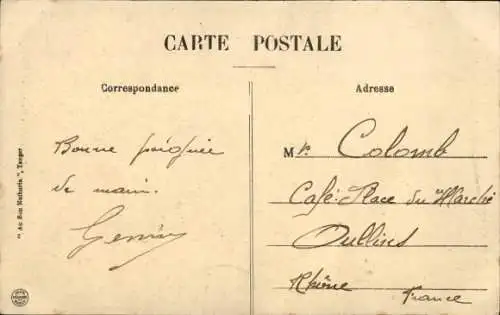 CARTE POSTALE
Correspondance
Adresse
Bonne poignée
de main.
Mr. Colomb
Café Place du Marché
Oullins
Rhône
France
"Au Bon Marché", Tanger